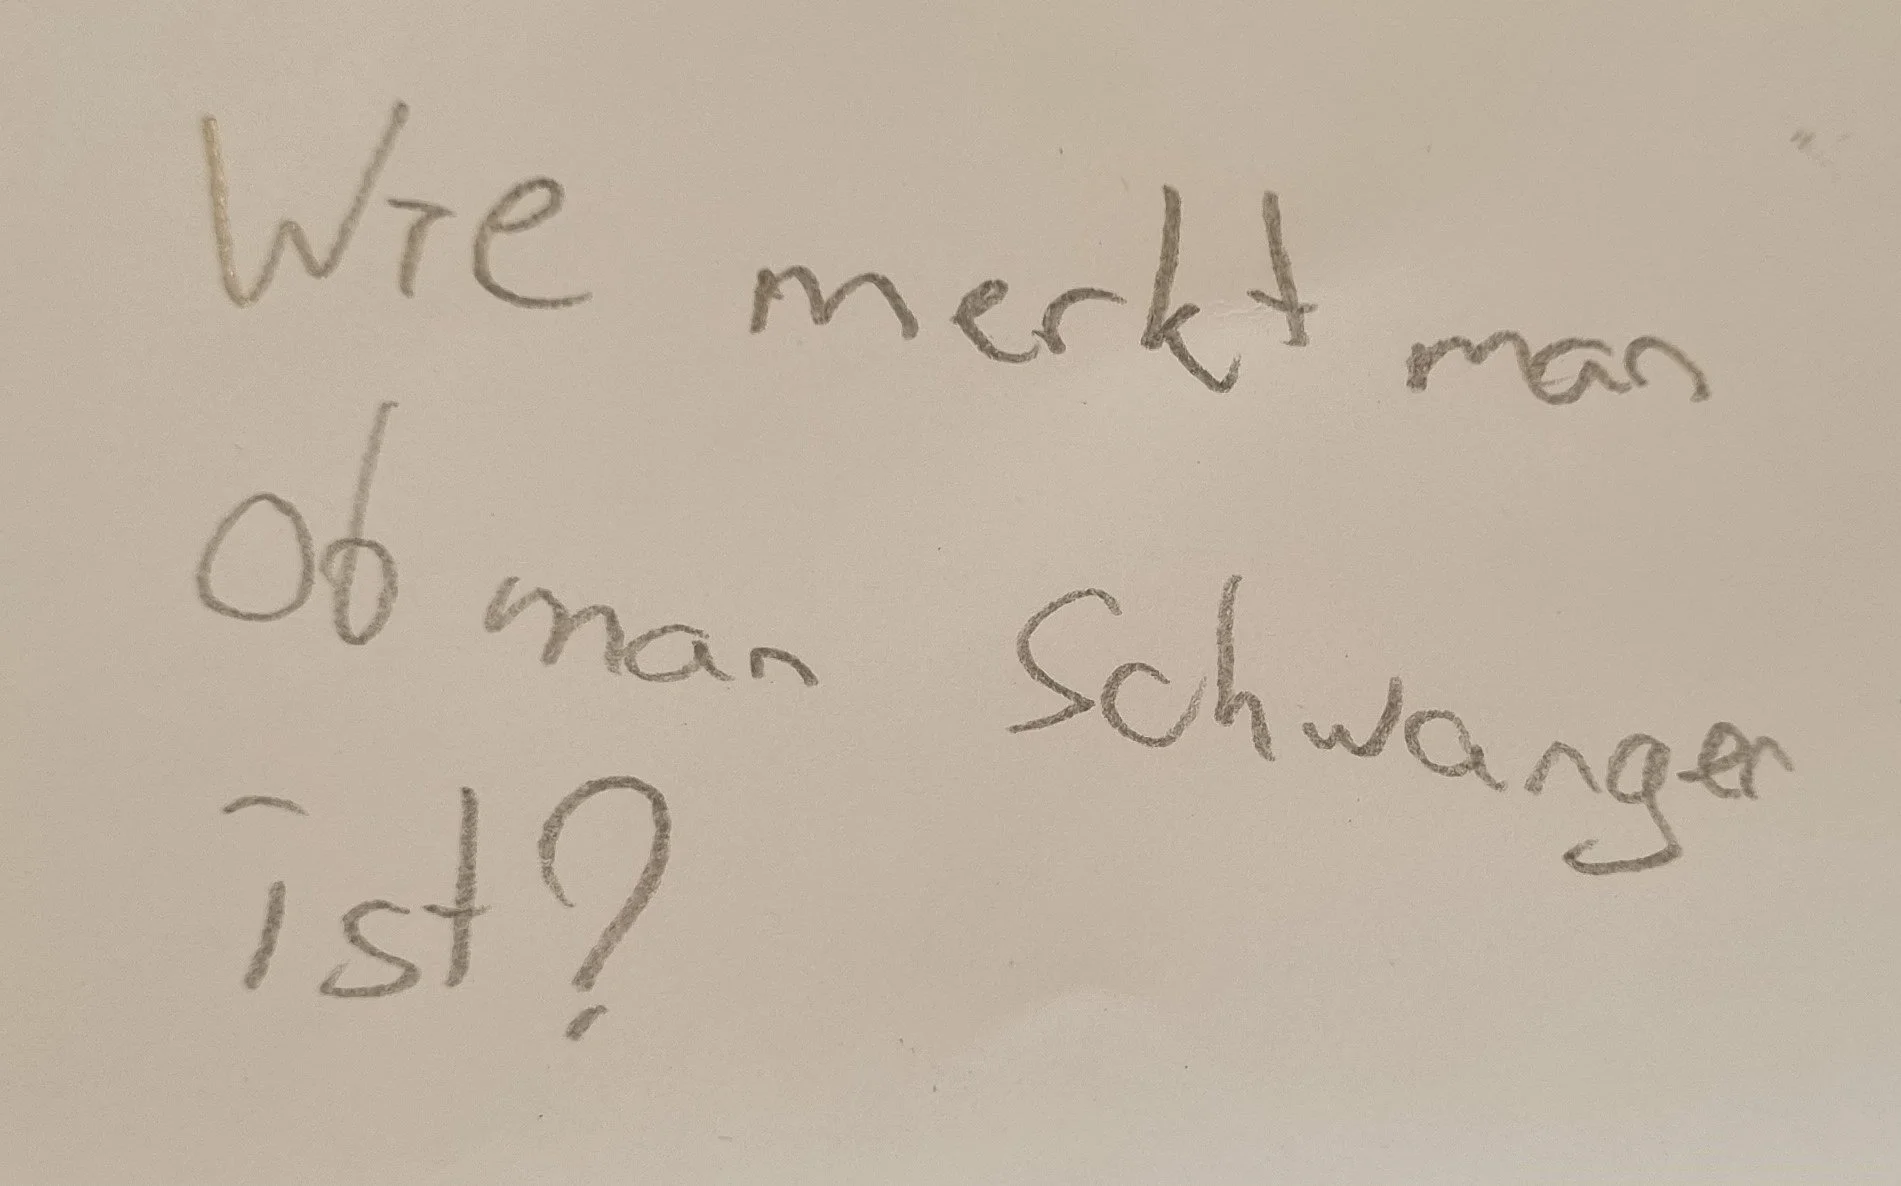 Wie merkt man
Ob man Schwanger
ist?